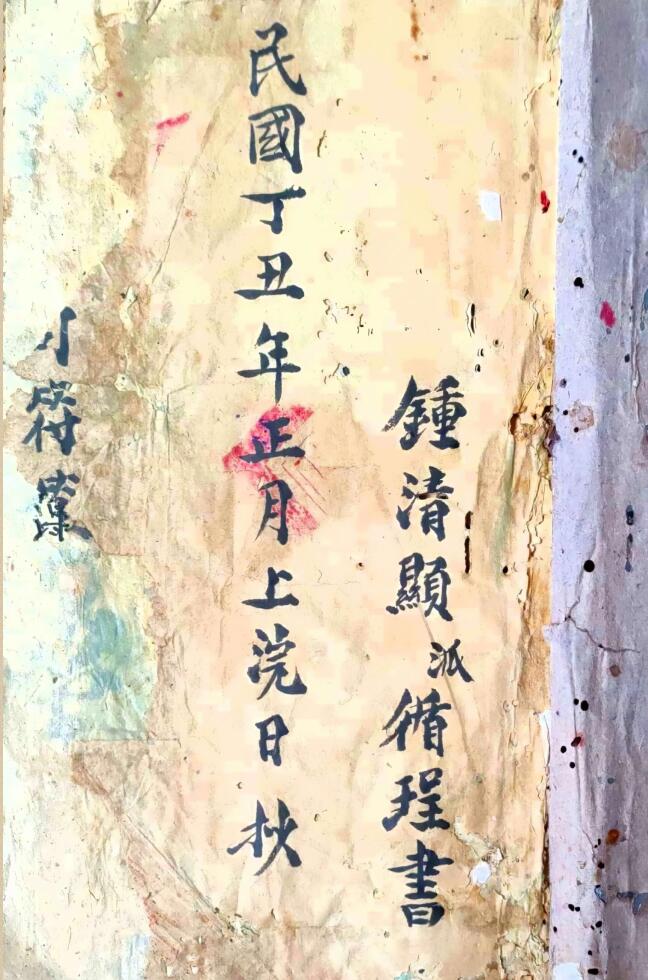 鍾清顯派循珵書
民國丁丑年正月上浣日抄
小符